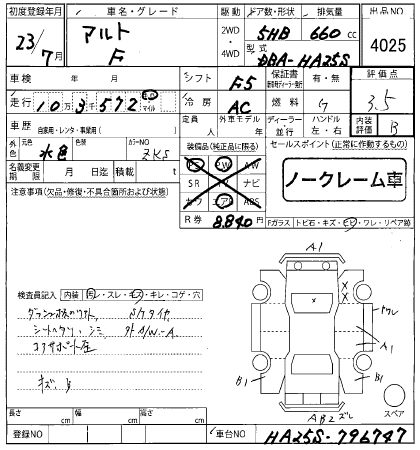 初度登録年月 車名・グレード 駆動 ドア数・形状 排気量 出品NO
23/7月 アルト F 2WD 4WD 5HB 660cc 4025
型式 DBA-HA25S
車検 年 月 シフト F5 保証書 有・無 評価点
走行 10万3千572 km マイル 冷房 AC 燃料 G 3.5
車歴 自家用・レンタ・事業用( ) 定員 人 外車モデル 年 ディーラー 並行 ハンドル 左・右 内装評価 B
外色 元色 水色 色 カラーNO ZKS
装備品(純正品に限る) セールスポイント(正常に作動するもの)
名義変更期限 月 日迄 積載 t
PS PW AW
SR ナビ
エアB ABS
ノークレーム車
注意事項(欠品・修復・不具合箇所および状態)
R券 8,840円
Fガラス トビ石・キズ・ヒビ・ワレ・リペア跡
A1
検査員記入 内装 汚レ・スレ・キズ・キレ・コゲ・穴
シートヘタリ シミ 外A/W-A
A1
B1
B1
AB2ズレ
スペア
長さ cm 幅 cm 高さ cm
登録NO 車台NO HA25S-796747